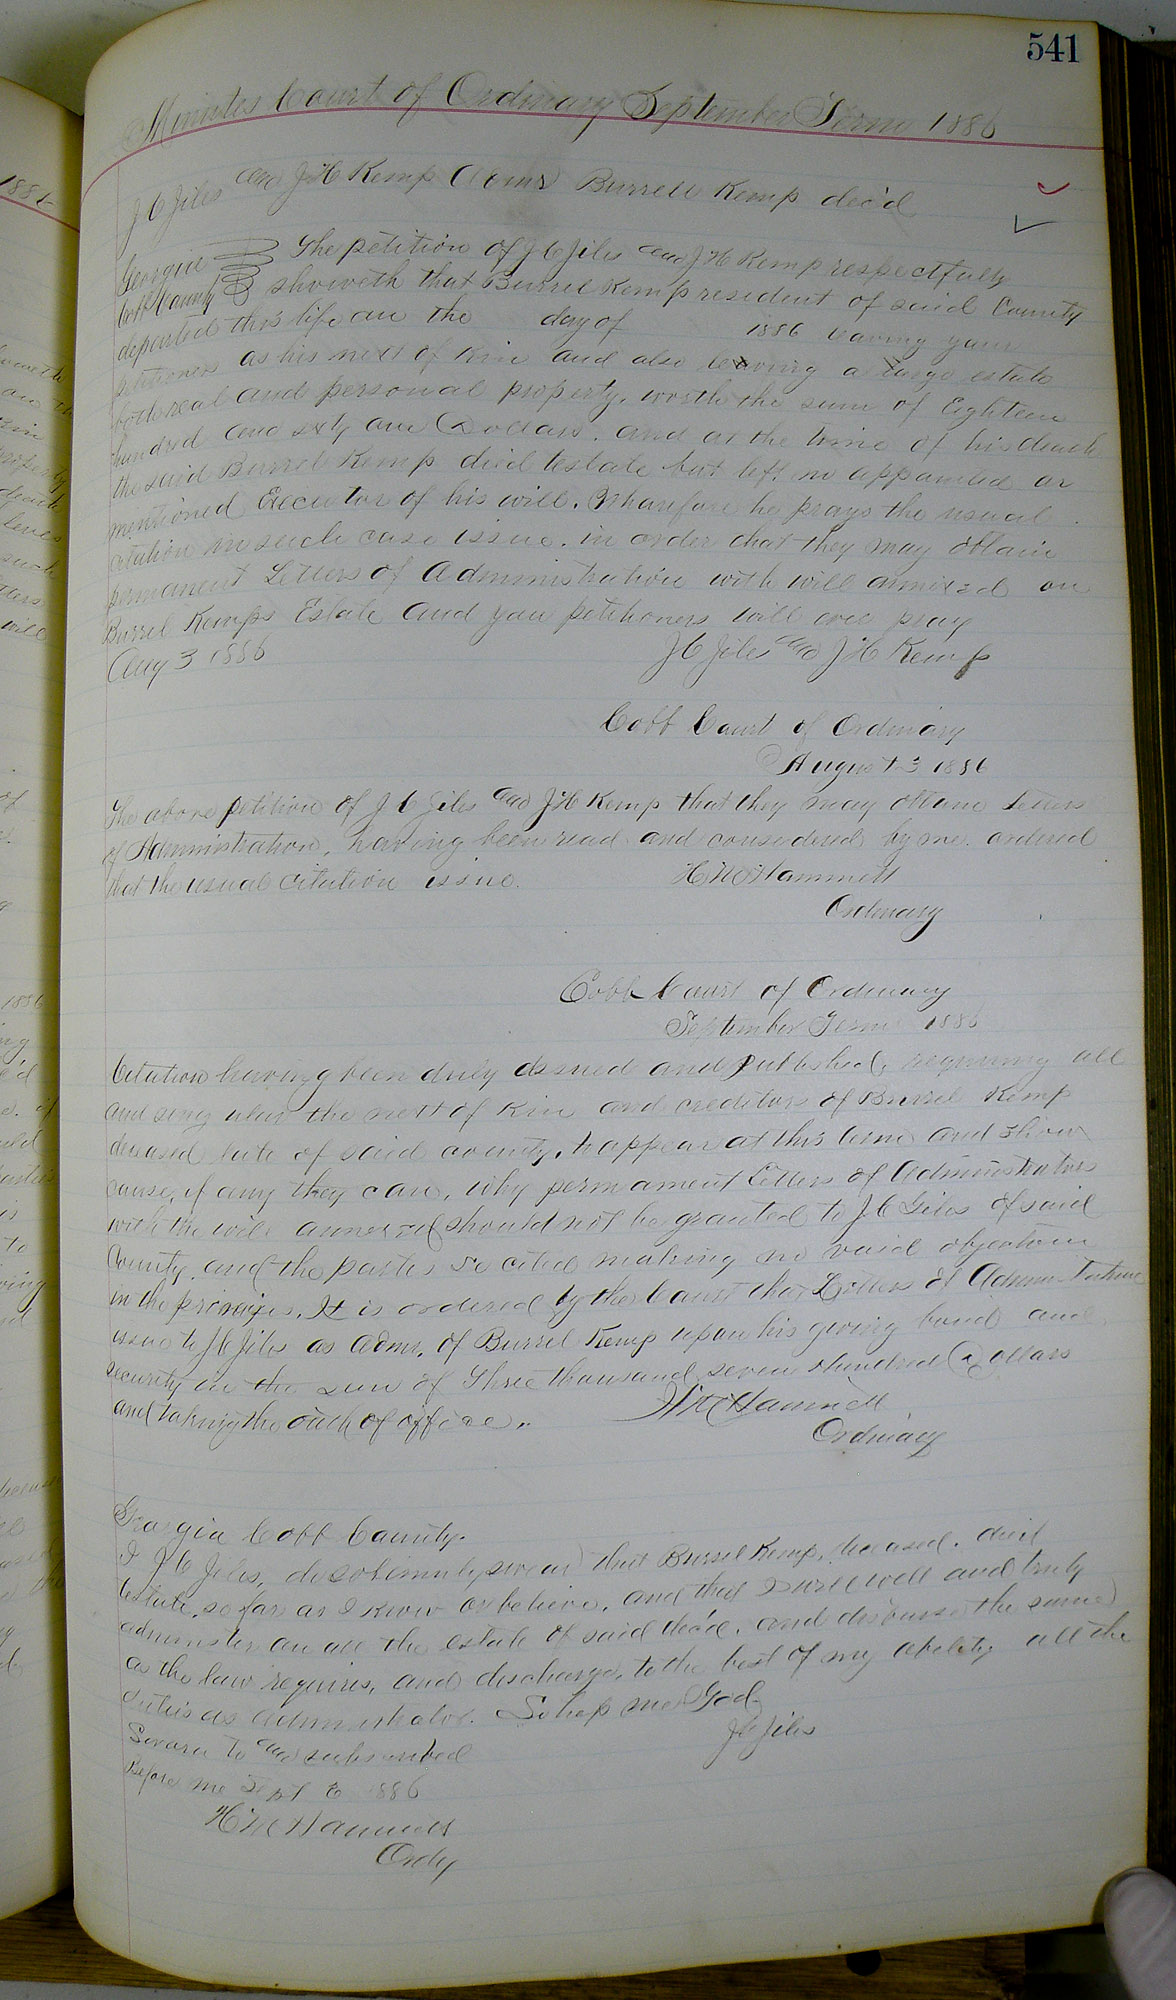 541
Minutes Court of Ordinary September Term 1886
J C Jiles and J H Kemp Admrs Burrell Kemp dec'd
Georgia The petition of J C Jiles and J H Kemp respectfully
Cobb County showeth that Burrel Kemp resident of said County
departed this life on the day of 1886 leaving your
petitioners as his next of Kin and also leaving a large estate
both real and personal property, worth the sum of Eighteen
hundred and sixty one Dollars. and at the time of his death
the said Burrel Kemp died testate but left no appointed or
mentioned Executor of his will. Wharefore he prays the usual
citation in such case issue. in order that they may obtain
permanent Letters of Administration with will annexed on
Burrel Kemps Estate and your petitioners will ever pray
Aug 3 1886 J C Jiles and J H Kemp
Cobb Court of Ordinary
August 3 1886
The above petition of J C Jiles and J H Kemp that they may obtain Letters
of Administration, having been read and considered by me. ordered
that the usual citation issue. H M Hammett
Ordinary
Cobb Court of Ordinary
September Term 1886
Citation having been duly issued and published, requiring all
and singular the next of Kin and creditors of Burrel Kemp
deceased late of said county, to appear at this term and show
cause, if any they can, why permanent Letters of Administration
with the will annexed should not be granted to J C Giles of said
County, and the parties so cited making no valid objection
in the primises. It is ordered by the Court that Letters of Administration
issue to J C Jiles as Admr. of Burrel Kemp upon his giving bond and
security in the sum of Three thousand seven Hundred Dollars
and taking the oath of office. H M Hammett
Ordinary
Georgia Cobb County.
I J C Jiles, do solemnly swear that Burrel Kemp, deceased. died
testate, so far as I know or believe, and that I will well and truly
administer on all the estate of said dec'd. and disburse the same
as the law requires, and discharge, to the best of my ability all the
duties as administrator. So help me God
Sworn to and subscribed J C Jiles
Before me Sept 6 1886
H M Hammett
Ordy